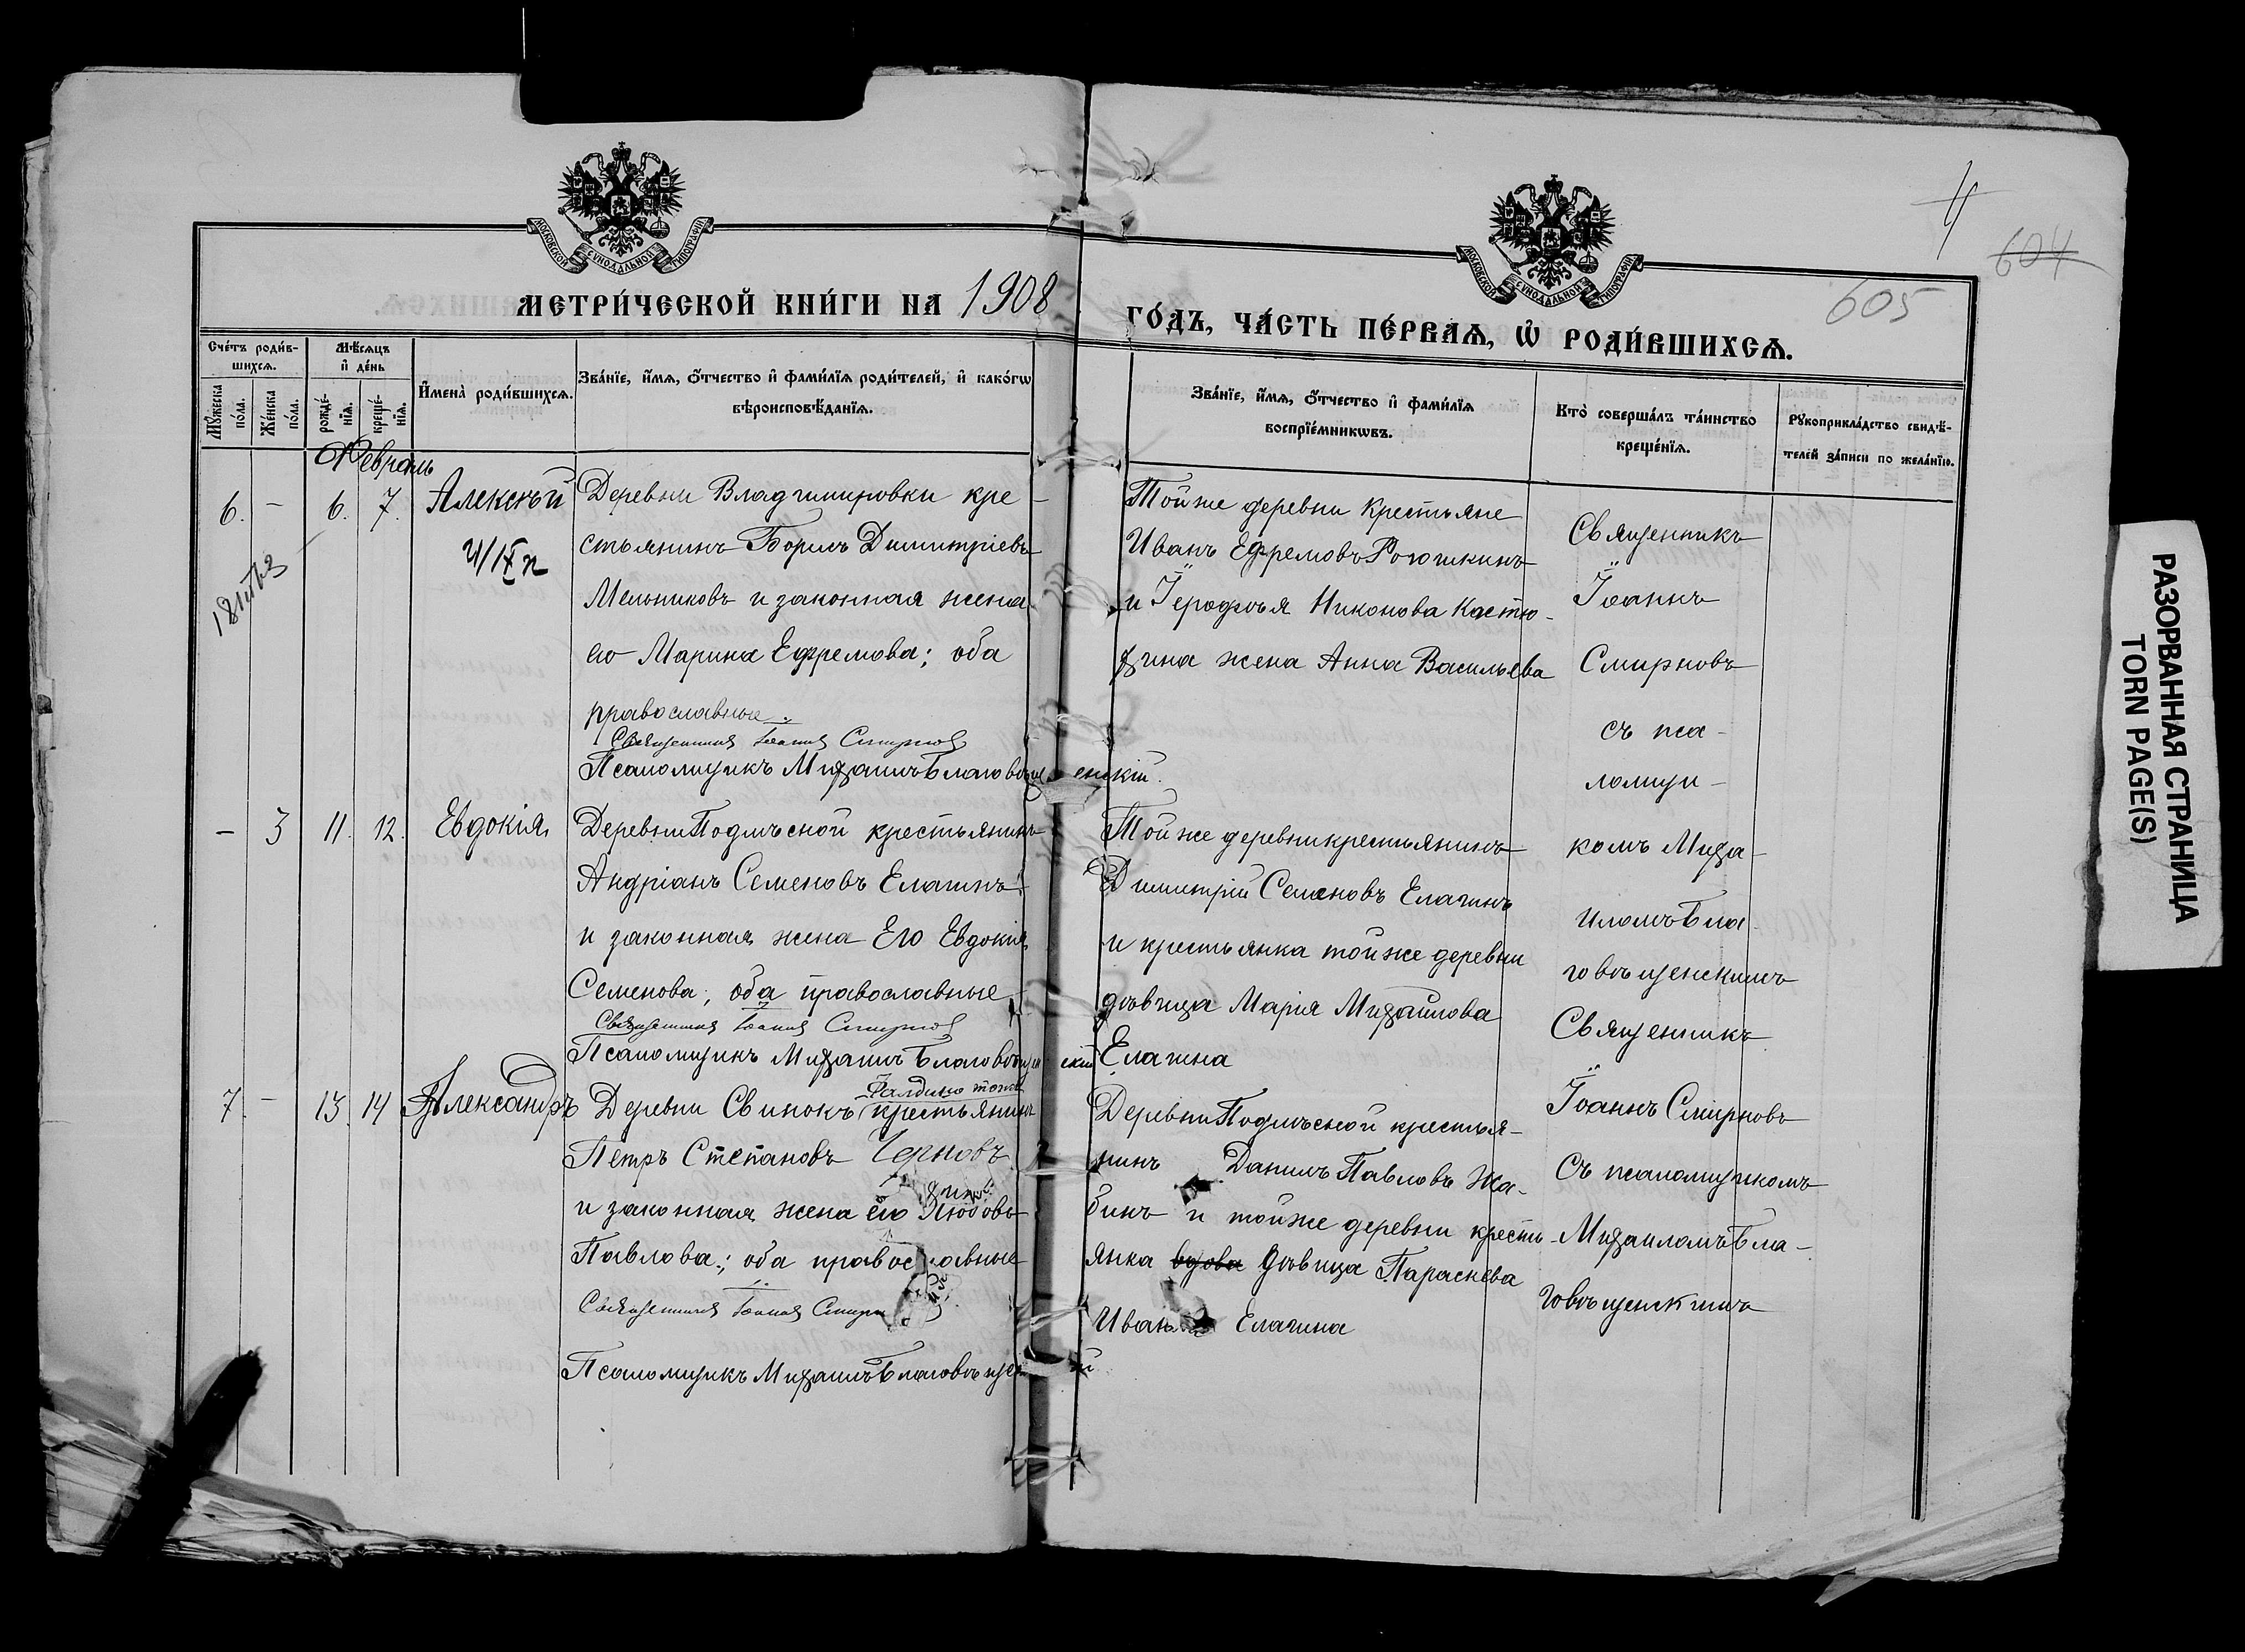 МОСКОВСКОЙ СѴНОДАЛЬНОЙ ТИПОГРАФІИ
МОСКОВСКОЙ СѴНОДАЛЬНОЙ ТИПОГРАФІИ
4
604
605
МЕТРИ́ЧЕСКОЙ КНИ́ГИ НА 1908
ГО́ДЪ, ЧА́СТЬ ПЕ́РВАѦ, Ѡ҆ РОДИ́ВШИХСѦ.
Сче́тъ роди́в-
шихсѧ.
Мꙋ́жеска по́ла.
Же́нска по́ла.
Мѣ́сѧцъ
и҆ де́нь
рожде́нїѧ.
креще́нїѧ.
И҆мена̀ роди́вшихсѧ.
Зва́нїе, и҆́мѧ, ѻ҆́тчество и҆ фами́лїѧ роди́телей, и҆ како́гѡ
вѣроисповѣ́данїѧ.
Зва́нїе, и҆́мѧ, ѻ҆́тчество и҆ фами́лїѧ
воспрїе́мникѡвъ.
Кто̀ соверша́лъ та́инство
креще́нїѧ.
Рꙋкоприкла́дство свидѣ́-
телей за́писи по жела́нїю.
Февраль
6. - 6. 7. Алексѣй
Деревни Владимировки кре-
стьянинъ Борисъ Димитріевъ
Мельниковъ и законная жена
его Марина Ефремова; оба
православные.
Священникъ Іоаннъ Смирнов
Псаломщикъ Михаилъ Благовѣщенскій.
Той же деревни крестьяне
Иванъ Ефремовъ
и Никонова Костю-
жена Анна Васильева
Священникъ
Іоаннъ
Смирновъ
съ пса-
ломщи-
комъ Миха-
иломъ Бла
говѣщенскимъ
- 3 11. 12. Евдокія
Деревни Подлѣсной крестьянинъ
Андріанъ Семеновъ Елагинъ
и законная жена Его Евдокия
Семенова; оба православные
Священникъ Іоаннъ Смирнов
Псаломщикъ Михаилъ Благовѣщенскій
Той же деревни крестьянинъ
Димитрій Семеновъ Елагинъ
и крестьянка той же деревни
дѣвица Марія Михайлова
Елагина
Священникъ
Іоаннъ Смирновъ
Съ псаломщикомъ
Михаиломъ Бла-
говѣщенскимъ
7. - 13. 14 Александръ
Деревни Свинокъ крестьянинъ
Петръ Степановъ Черновъ
и законная жена его Любовь
Павлова; оба православные
Священникъ Іоаннъ Смирн
Псаломщикъ Михаилъ Благовѣщен й
Деревни Подлѣсной крестья-
нинъ Данилъ Павловъ Жа-
бинъ и той же деревни кресть
янка вдова дѣвица Параскева
Иван Елагина
РАЗОРВАННАЯ СТРАНИЦА
TORN PAGE(S)